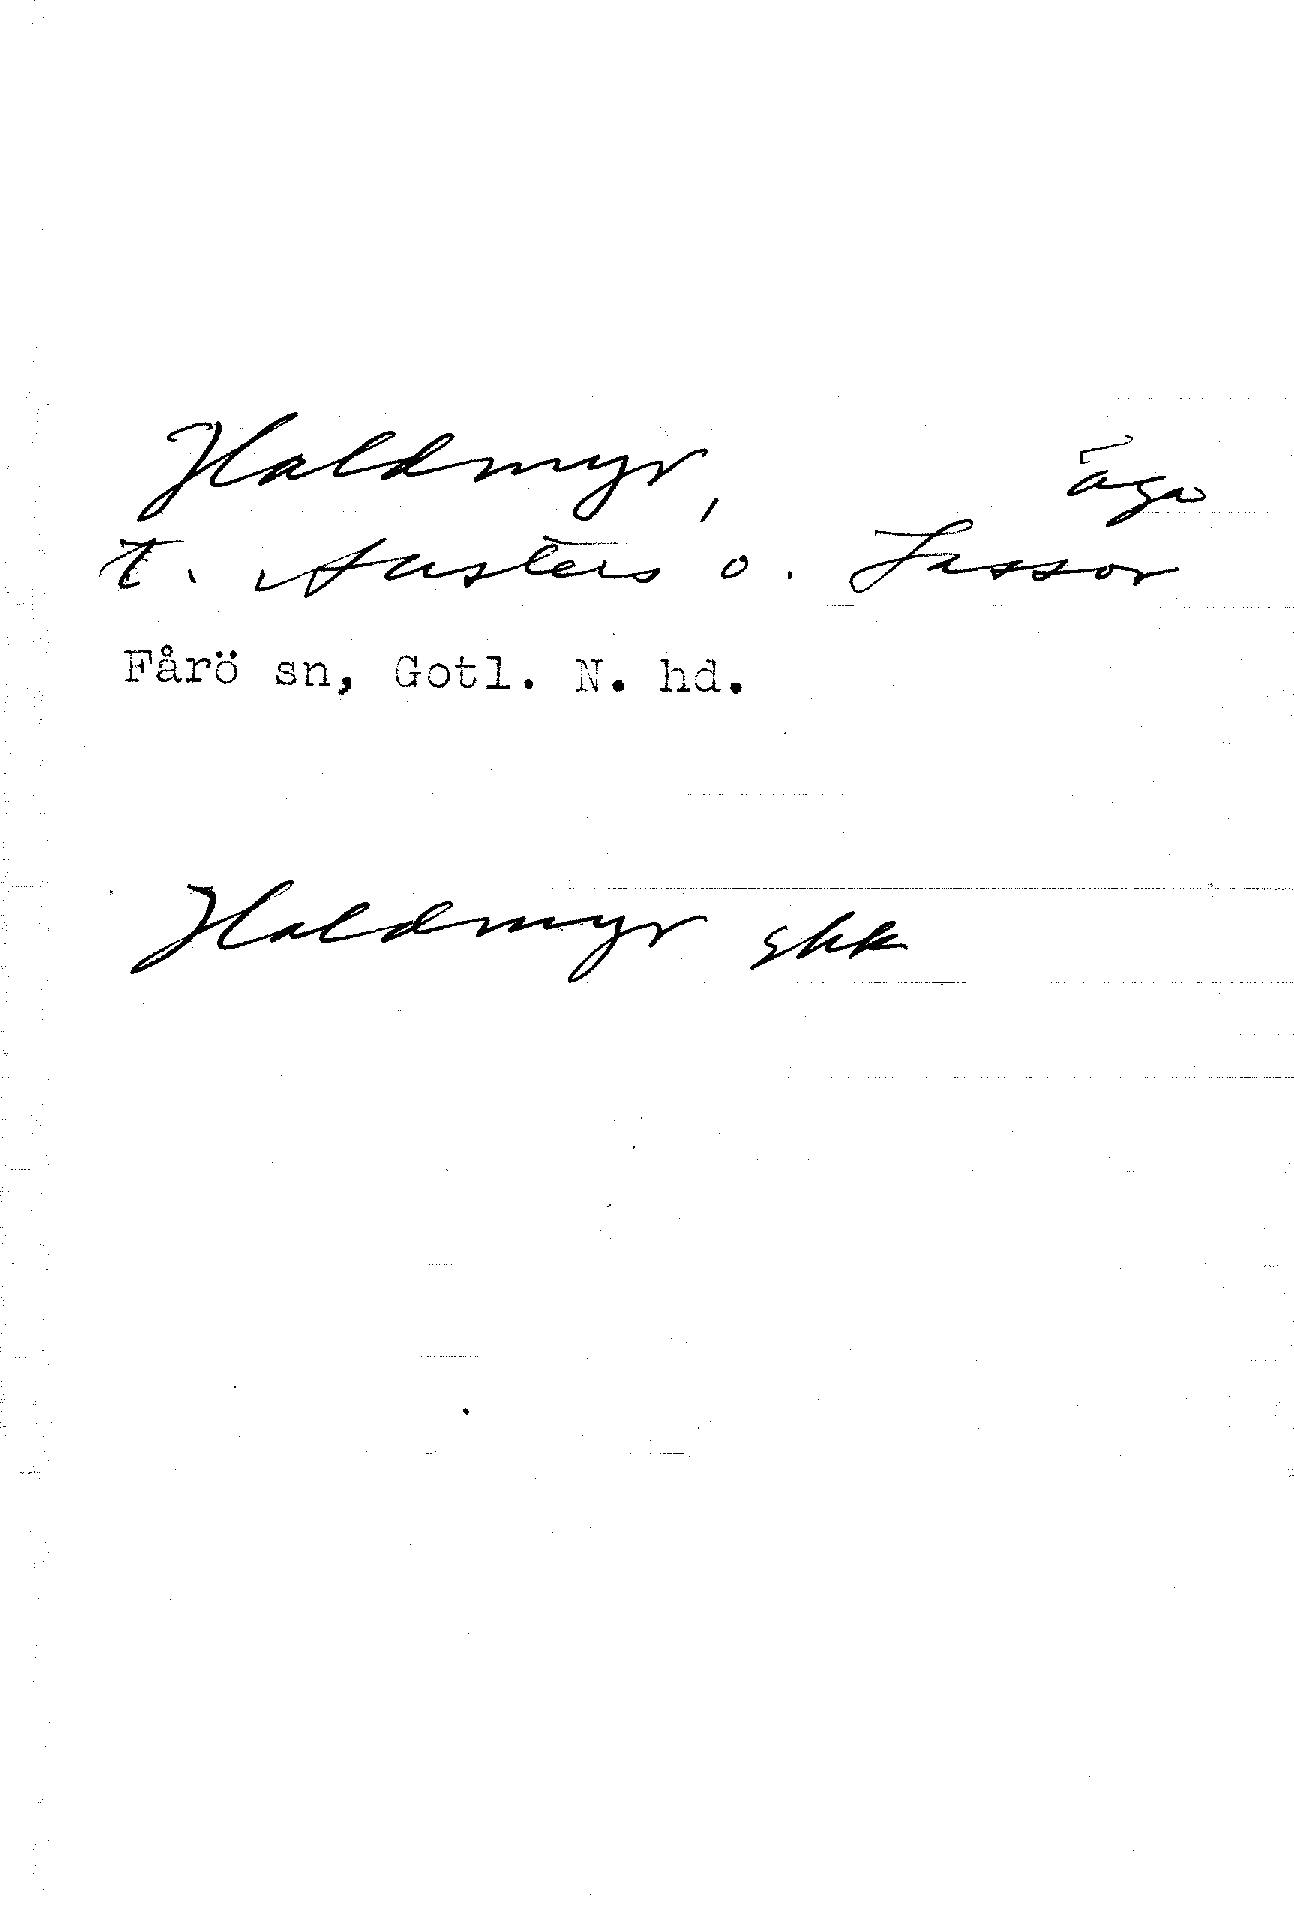 Haldmyr, äga
t. Austers o. Lassor
Fårö sn, Gotl. N. hd.
Haldmyr skk